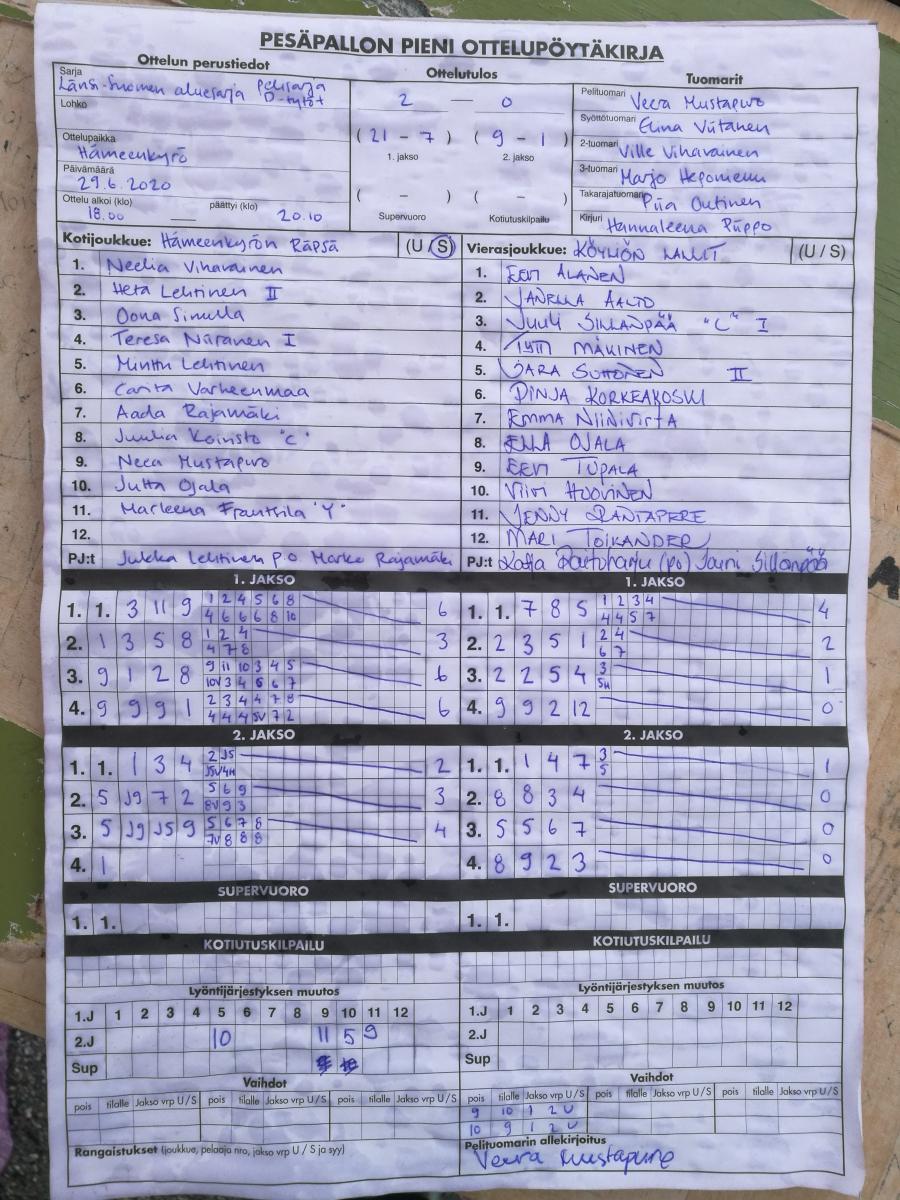 PESÄPALLON PIENI OTTELUPÖYTÄKIRJA
Ottelun perustiedot
Ottelutulos
Tuomarit
Sarja Länsi-Suomen aluesarja Pelisarja
D-tytöt
Lohko
Ottelupaikka
Hämeenkyrö
Päivämäärä
29.6.2020
Ottelu alkoi (klo) päättyi (klo)
18.00 — 20.10
2 — 0
(21 - 7) (9 - 1)
1. jakso 2. jakso
( - ) ( - )
Supervuoro Kotiutuskilpailu
Pelituomari Veera Mustapuro
Syöttötuomari Elina Viitanen
2-tuomari Ville Vihavainen
3-tuomari Marjo
Takarajatuomari Piia Outinen
Kirjuri Hannaleena Piippo
Kotijoukkue: Hämeenkyrön Räpsä (U / S)
1. Neelia Vihavainen
2. Heta Lehtinen II
3. Oona Simula
4. Teresa Niiranen I
5. Minttu Lehtinen
6. Carita Varheenmaa
7. Aada Rajamäki
8. Juulia Koivisto "C"
9. Neea Mustapuro
10. Jutta Ojala
11. Marleena Franttila "Y"
12.
PJ:t Jukka Lehtinen P.O. Marko Rajamäki
Vierasjoukkue: KÖYLIÖN LALLIT (U / S)
1. EEVI ALANEN
2. JANELLA AALTO
3. JUULI SILLANPÄÄ "C" I
4. TYTTI MÄKINEN
5. SARA SUTTONEN II
6. PINJA KORKEAKOSKI
7. EMMA NIINIVIRTA
8. ELLA OJALA
9. EEVI TUPALA
10. VIIVI HUOVINEN
11. JENNY RANTAPERE
12. MARI TOIKANDER
PJ:t Katja Rautoharju (po) Jauni Sillanpää
1. JAKSO
1. 1. 3 11 9 1 2 4 5 6 8 6
4 6 6 6 8 10
2. 1 3 5 8 1 2 4 3
4 7 8
3. 9 1 2 8 9 11 10 3 4 5 6
10V 3 4 6 6 7
4. 9 9 9 1 2 3 4 4 7 8 6
4 4 4 5V 7 2
1. JAKSO
1. 1. 7 8 5 1 2 3 4 4
4 4 5 7
2. 2 3 5 1 2 4 2
6 7
3. 2 2 5 4 3 1
5H
4. 9 9 2 12 0
2. JAKSO
1. 1. 1 3 4 2 J5 2
J5V 4H
2. 5 J9 7 2 5 6 9 3
8V 9 3
3. 5 J9 J5 9 5 6 7 8 4
7V 8 8 8
4. 1
2. JAKSO
1. 1. 1 4 7 3 1
5
2. 8 8 3 4 0
3. 5 5 6 7 0
4. 8 9 2 3 0
SUPERVUORO
1. 1.
SUPERVUORO
1. 1.
KOTIUTUSKILPAILU
KOTIUTUSKILPAILU
Lyöntijärjestyksen muutos
1.J 1 2 3 4 5 6 7 8 9 10 11 12
2.J 10 11 5 9
Sup
Lyöntijärjestyksen muutos
1.J 1 2 3 4 5 6 7 8 9 10 11 12
2.J
Sup
Vaihdot
pois tilalle Jakso vrp U/S pois tilalle Jakso vrp U/S pois tilalle Jakso vrp U/S
Rangaistukset (joukkue, pelaaja nro, jakso vrp U / S ja syy)
Vaihdot
pois tilalle Jakso vrp U/S pois tilalle Jakso vrp U/S pois tilalle Jakso vrp U/S
9 10 1 2 U
10 9 1 2 U
Pelituomarin allekirjoitus
Veera Mustapuro